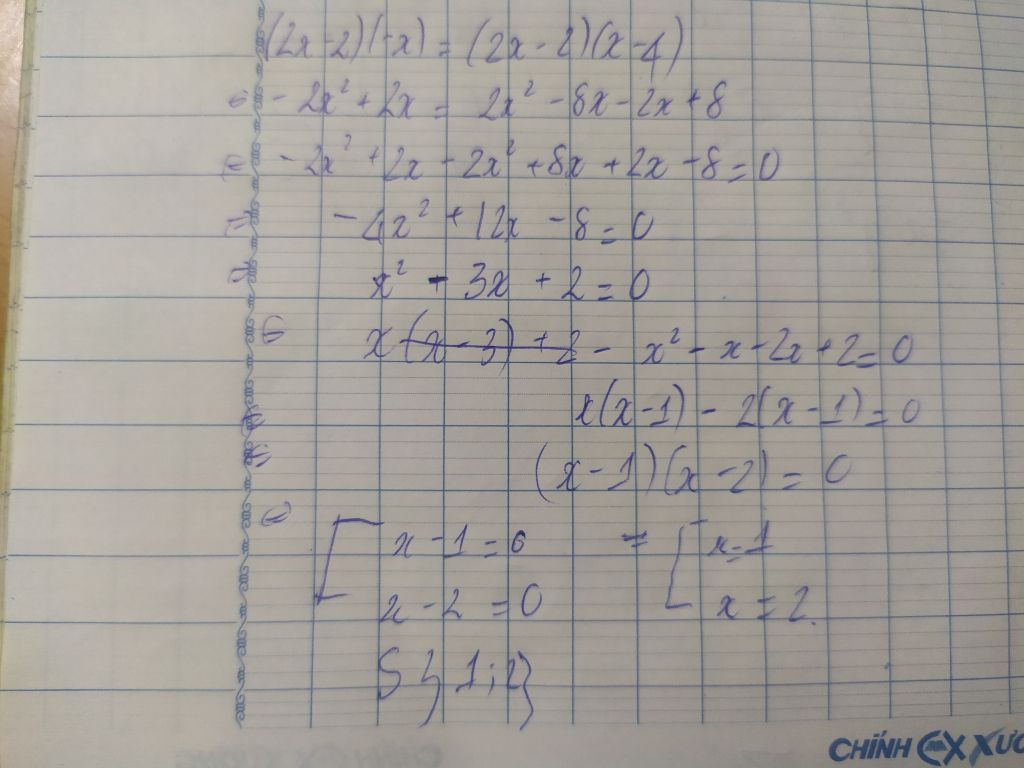 (2x-2)(-x) = (2x-2)(x-4)
⇔ - 2x² + 2x = 2x² - 8x - 2x + 8
⇔ - 2x² + 2x - 2x² + 8x + 2x - 8 = 0
⇔ - 4x² + 12x - 8 = 0
⇔ x² - 3x + 2 = 0
⇔ x(x-3) + 2 - x² - x - 2x + 2 = 0
⇔ x(x-1) - 2(x-1) = 0
⇔ (x-1)(x-2) = 0
⇔ [ x - 1 = 0 = [ x = 1
x - 2 = 0 x = 2.
S { 1 ; 2 }
CHÍNH